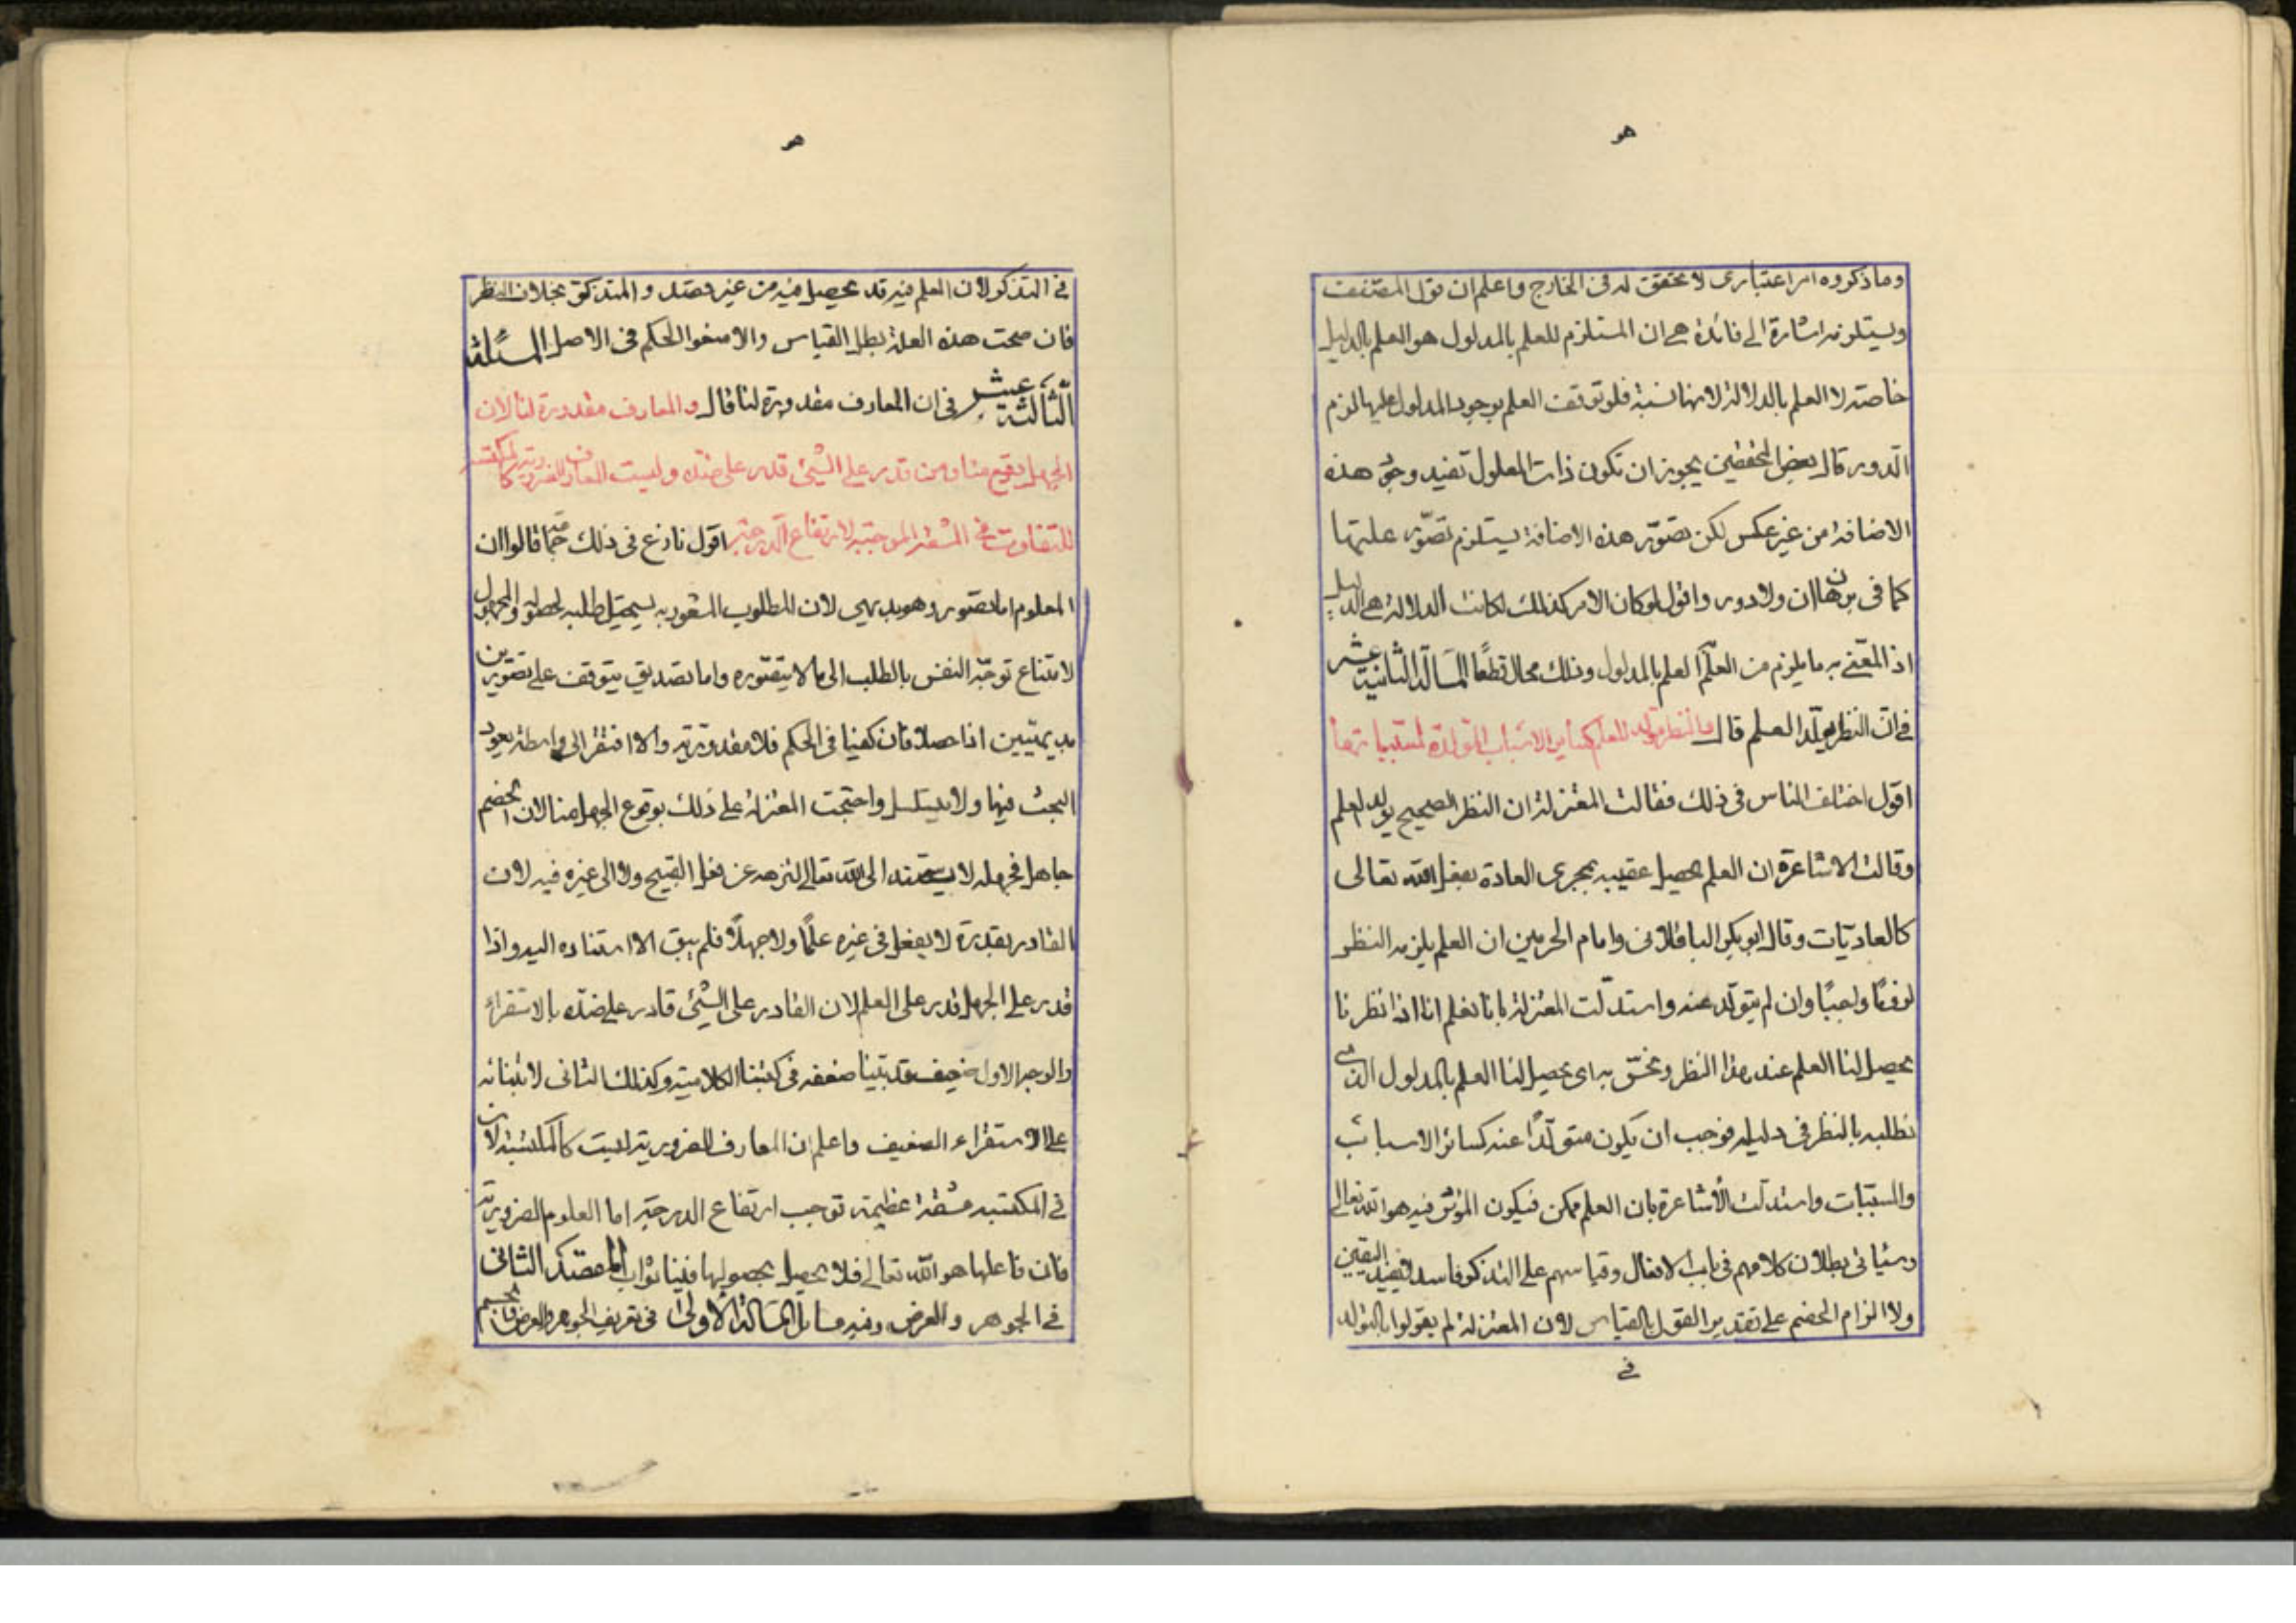 هو
وما ذكروه امر اعتبارى لا تحقق له فى الخارج واعلم ان قول المصنف
ويستلزمه اشارة الى فائدة هى ان المستلزم للعلم بالمدلول هو العلم بالدليل
خاصة لا العلم بالدلالة لانها نسبة فلو توقف العلم بوجود المدلول عليها لزم
الدور قال بعض المحققين يجوز ان تكون ذات المعلول تفيد وجود هذه
الاضافة من غير عكس لكن تصور هذه الاضافة يستلزم تصور عليتها
كما فى برهان ان ولا دور واقول لو كان الامر كذلك لكانت الدلالة هى الدليل
اذ المعنى به ما يلزم من العلم العلم بالمدلول وذلك محال قطعًا المسألة الثانية عشر
فى ان النظر يولد العلم قال والنظر مولد للعلم كسائر الاسباب المولدة لمسبباتها
اقول اختلف الناس فى ذلك فقالت المعتزلة ان النظر الصحيح يولد العلم
وقالت الاشاعرة ان العلم يحصل عقيبه بمجرى العادة بفعل الله تعالى
كالعاديات وقال ابو بكر الباقلانى وامام الحرمين ان العلم يلزمه النظر
لزومًا واجبًا وان لم يتولد عنه واستدلت المعتزلة بانا نعلم انا اذا نظرنا
يحصل لنا العلم عند هذا النظر وبحسبه اى يحصل لنا العلم بالمدلول الذى
نطلبه بالنظر فى دليله فوجب ان يكون متولدًا عنه كسائر الاسباب
والمسببات واستدلت الأشاعرة بان العلم ممكن فيكون المؤثر فيه هو الله تعالى
وسيأتى بطلان كلامهم فى باب الافعال وقياسهم على التذكر فاسد لا يفيد اليقين
ولا الزام الخصم على تقدير القول بالقياس لان المعتزلة لم يقولوا بالتولد
فى
هو
فى التذكر لان العلم فيه قد يحصل فيه من غير قصد والمتذكر بخلاف النظر
فان صحت هذه العلة بطل القياس والا منعوا الحكم فى الاصل المسئلة
الثالثة عشر فى ان المعارف مقدورة لنا قال والمعارف مقدورة لنا لان
الجهل يقع منا ومن قدر على الشيئ قدر على ضده وليست المعارف الضرورية كالمكتسبة
للتفاوت فى المشقة الموجبة لارتفاع الدرجة اقول نازع فى ذلك قالوا ان
المعلوم اما تصور وهو بديهى لان المطلوب المشعور به يستحيل طلبه لحصوله والمجهول
لامتناع توجه النفس بالطلب الى ما لا يتصوره واما تصديق يتوقف على تصورين
بديهيين اذا حصلا فان كفيا فى الحكم فلا مقدورية والا افتقر الى واسطة يعود
البحث فيها ولا يتسلسل واحتجت المعتزلة على ذلك بوقوع الجهل منا لان الخصم
جاهل فجهله لا يستند الى الله تعالى لتنزهه عن فعل القبيح ولا الى غيره فيه لان
القادر بقدرة لا يفعل فى غيره علمًا ولا جهلًا فلم يبق الا استناده اليه واذا
قدر على الجهل قدر على العلم لان القادر على الشيئ قادر على ضده بالاستقراء
والوجه الاول ضعيف وقد بينا ضعفه فى كتبنا الكلامية وكذلك الثانى لابتنائه
على الاستقراء الضعيف واعلم ان المعارف الضرورية ليست كالمكتسبة لان
فى المكتسبه مشقة عظيمة توجب ارتفاع الدرجة اما العلوم الضرورية
فان فاعلها هو الله تعالى فلا يحصل بحصولها فينا ثواب المقصد الثانى
فى الجوهر والعرض وفيه مسائل المسألة الأولى فى تعريف الجوهر والعرض والجسم